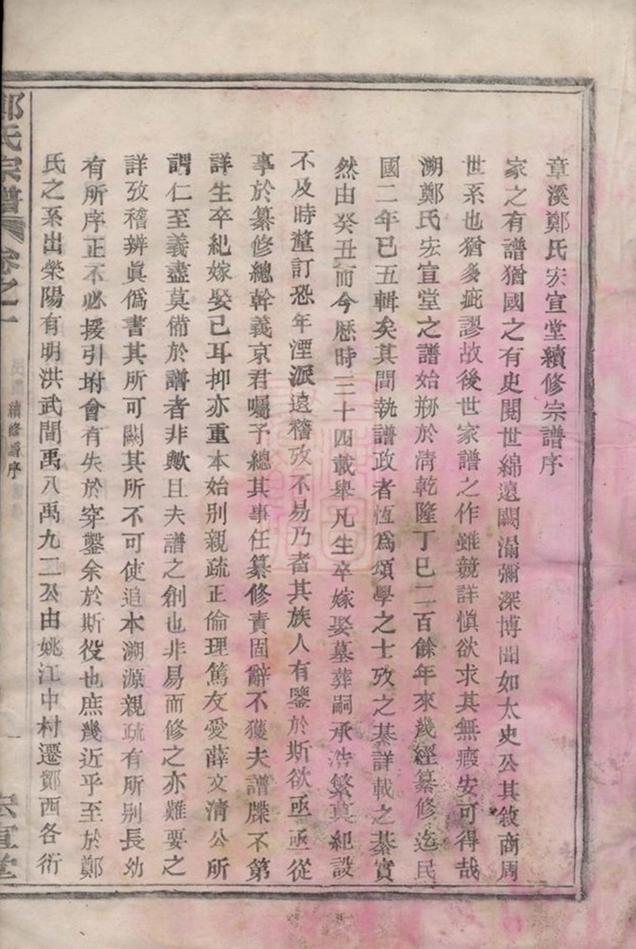 章溪鄭氏宏宣堂續修宗譜序
家之有譜猶國之有史閱世綿遠闕漏彌深博聞如太史公其敘商周
世系也猶多疵謬故後世家譜之作雖競詳愼欲求其無瑕安可得哉
溯鄭氏宏宣堂之譜始刱於清乾隆丁巳二百餘年來幾經纂修迄民
國二年已五輯矣其間執譜政者恆爲碩學之士攷之綦詳載之綦實
然由癸丑而今歷時三十四載舉凡生卒嫁娶墓葬嗣承浩繁莫紀設
不及時釐訂恐年湮派遠稽攷不易乃者其族人有鑒於斯欲亟亟從
事於纂修總幹義京君囑予總其事任纂修責固辭不獲夫譜牒不第
詳生卒紀嫁娶已耳抑亦重本始別親疏正倫理篤友愛薛文清公所
謂仁至義盡莫備於譜者非歟且夫譜之創也非易而修之亦難要之
詳攷稽辨眞僞書其所可闕其所不可使追本溯源親疏有所別長幼
有所序正不必援引坿會有失於穿鑿余於斯役也庶幾近乎至於鄭
氏之系出滎陽有明洪武間禹八禹九二公由姚江中村遷鄞西各衍
鄭氏宗譜
卷之一
續修譜序
一
宏宣堂